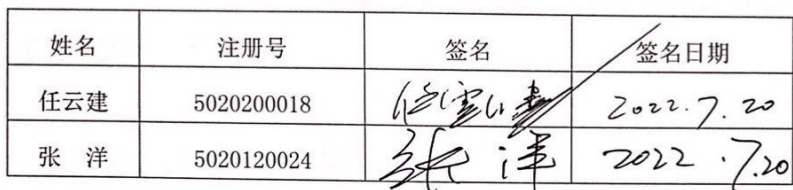 姓名 注册号 签名 签名日期
任云建 5020200018 任云建 2022.7.20
张 洋 5020120024 张洋 2022.7.20